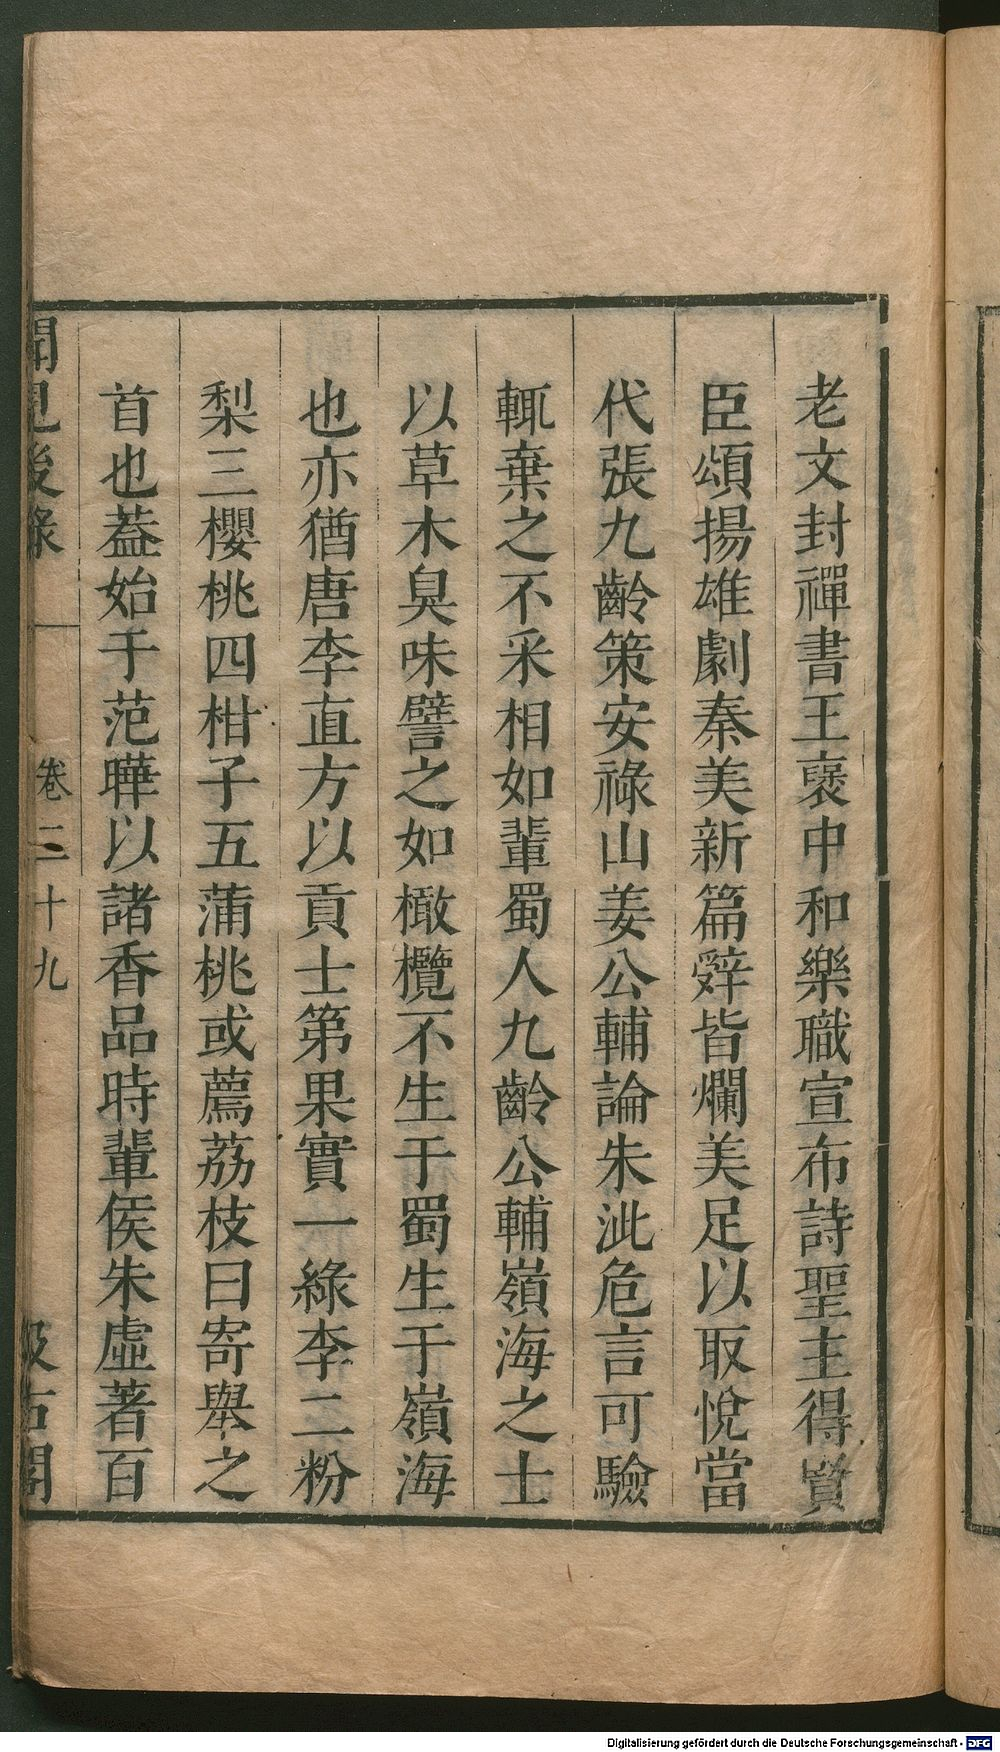 老文封禪書王褒中和樂職宣布詩聖主得賢
臣頌揚雄劇秦美新篇辭皆爛美足以取悅當
代張九齡策安祿山姜公輔論朱泚危言可驗
輒棄之不采相如輩蜀人九齡公輔嶺海之士
以草木臭味譬之如橄欖不生于蜀生于嶺海
也亦猶唐李直方以貢士第果實一綠李二粉
梨三櫻桃四柑子五蒲桃或薦荔枝曰寄舉之
首也葢始于范曄以諸香品時輩侯朱虛著百
聞見後錄 卷二十九 汲古閣
Digitalisierung gefördert durch die Deutsche Forschungsgemeinschaft - DFG